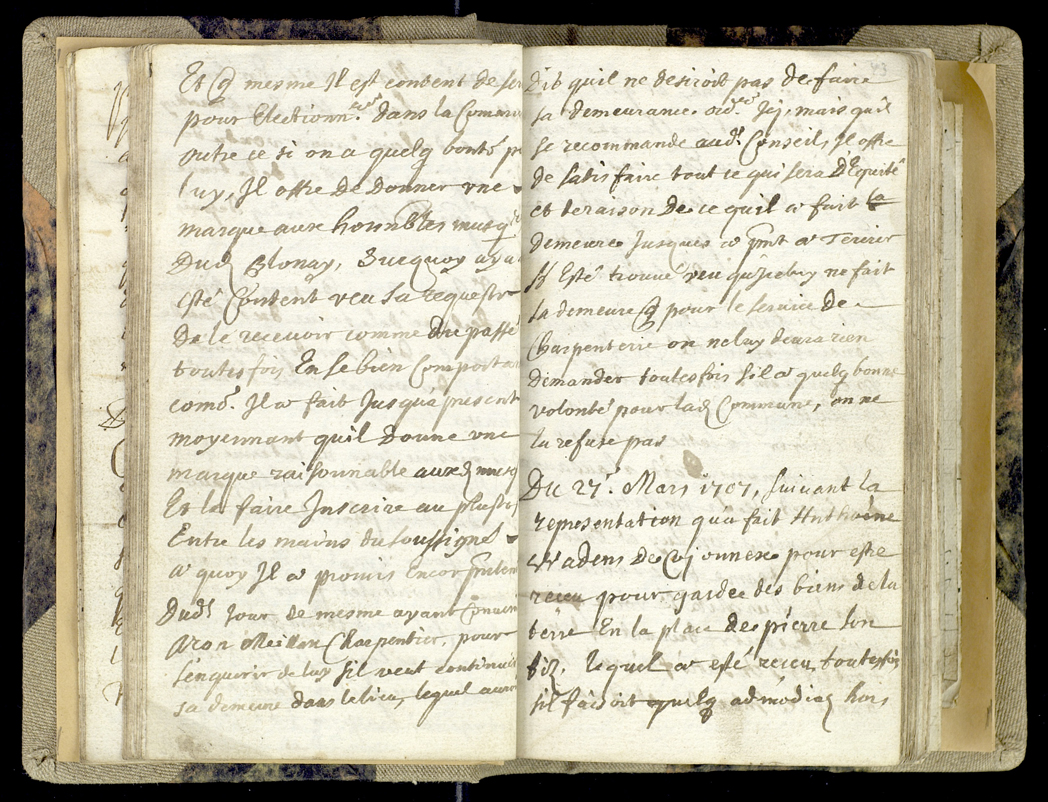 Et q mesme Il est content de ser
pour Election.re dans la Commu
outre ce si on a quelq bonté p
luy, Il offre De Donner vne
marque aux honnbles musq
Dud Blonay, Surquoy aya
esté Content veu sa requestre
De le recevoir comme du passé
toutesfois En se bien Comportan
comē. Il a fait Jusqu'a present
moyennant quil Donne vne
marque raisonnable auxd musq
Et la faire Inscrire au plustos
Entre les mains du soussigné
a quoy Il a promis Encor
Dudt Jour de mesme ayant Conuen
Aron Charpentier, pour
s'enquerir de luy sil veut continuer
sa demeure dans le lieu, lequel auroit
Dit quil ne desiroit pas de faire
sa demeurance ordre Icj, mais quil
se recommande audt Conseils, Il offre
de satisfaire tout ce qui sera D'Equité
et la raison De ce quil a fait sa
demeure Jusques a pnt a Tercier
Il Esté trouué veu qu'jceluy ne fait
sa demeure q pour le seruice de
Charpenterie on ne luy deura rien
demander toutesfois sil a quelq bonne
volonté pour lad Commune, on ne
la refuse pas
43
Du 27e. Mars 1707, suiuant la
representation qu'a fait Anthoine
Wadens De Cojonnex pour estre
receu pour gardee des biens de la
terre En la place de pierre son
filz, lequel a esté receu, toutesfois
sil faisoit quelq admodiaõ hors